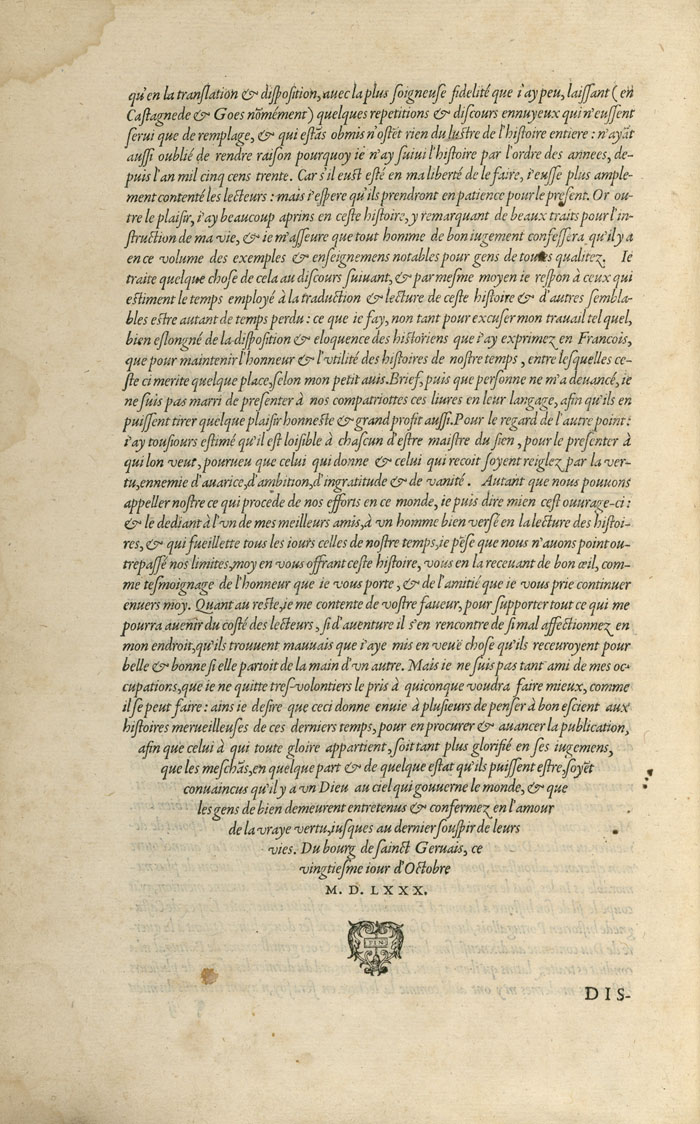 qu'en la translation & disposition, auec la plus soigneuse fidelité que i'ay peu, laissant (en
Castagnede & Goes nōmément) quelques repetitions & discours ennuyeux qui n'eussent
serui que de remplage, & qui estās obmis n'ostēt rien du lustre de l'histoire entiere : n'ayāt
aussi oublié de rendre raison pourquoy ie n'ay suiui l'histoire par l'ordre des annees, de-
puis l'an mil cinq cens trente. Car s'il eust esté en ma liberté de le faire, i'eusse plus ample-
ment contenté les lecteurs : mais i'espere qu'ils prendront en patience pour le present. Or ou-
tre le plaisir, i'ay beaucoup aprins en ceste histoire, y remarquant de beaux traits pour l'in-
struction de ma vie, & ie m'asseure que tout homme de bon iugement confessera qu'il y a
en ce volume des exemples & enseignemens notables pour gens de toutes qualitez. Ie
traite quelque chose de cela au discours suiuant, & par mesme moyen ie respōn à ceux qui
estiment le temps employé à la traduction & lecture de ceste histoire & d'autres sembla-
bles estre autant de temps perdu : ce que ie fay, non tant pour excuser mon trauail tel quel,
bien eslongné de la disposition & eloquence des historiens que i'ay exprimez en Francois,
que pour maintenir l'honneur & l'vtilité des histoires de nostre temps, entre lesquelles ce-
ste ci merite quelque place, selon mon petit auis. Brief, puis que personne ne m'a deuancé, ie
ne suis pas marri de presenter à nos compatriottes ces liures en leur langage, afin qu'ils en
puissent tirer quelque plaisir honneste & grand profit aussi. Pour le regard de l'autre point :
i'ay tousiours estimé qu'il est loisible à chascun d'estre maistre du sien, pour le presenter à
qui lon veut, pourueu que celui qui donne & celui qui recoit soyent reiglez par la ver-
tu, ennemie d'auarice, d'ambition, d'ingratitude & de vanité. Autant que nous pouuons
appeller nostre ce qui procede de nos efforts en ce monde, ie puis dire mien cest ouurage-ci :
& le dediant à l'vn de mes meilleurs amis, à vn homme bien versé en la lecture des histoi-
res, & qui fueillette tous les iours celles de nostre temps, ie pēse que nous n'auons point ou-
trepassé nos limites, moy en vous offrant ceste histoire, vous en la receuant de bon œil, com-
me tesmoignage de l'honneur que ie vous porte, & de l'amitié que ie vous prie continuer
enuers moy. Quant au reste, ie me contente de vostre faueur, pour supporter tout ce qui me
pourra auenir du costé des lecteurs, si d'auenture il s'en rencontre de si mal affectionnez en
mon endroit, qu'ils trouuent mauuais que i'aye mis en veuë chose qu'ils receuroyent pour
belle & bonne si elle partoit de la main d'vn autre. Mais ie ne suis pas tant ami de mes oc-
cupations, que ie ne quitte tres-volontiers le pris à quiconque voudra faire mieux, comme
il se peut faire : ains ie desire que ceci donne enuie à plusieurs de penser à bon escient aux
histoires merueilleuses de ces derniers temps, pour en procurer & auancer la publication,
afin que celui à qui toute gloire appartient, soit tant plus glorifié en ses iugemens,
que les meschās, en quelque part & de quelque estat qu'ils puissent estre, soyēt
conuaincus qu'il y a vn Dieu au ciel qui gouuerne le monde, & que
les gens de bien demeurent entretenus & confermez en l'amour
de la vraye vertu, iusques au dernier souspir de leurs
vies. Du bourg de sainct Geruais, ce
vingtiesme iour d'Octobre
M. D. LXXX.
FIN
DIS-